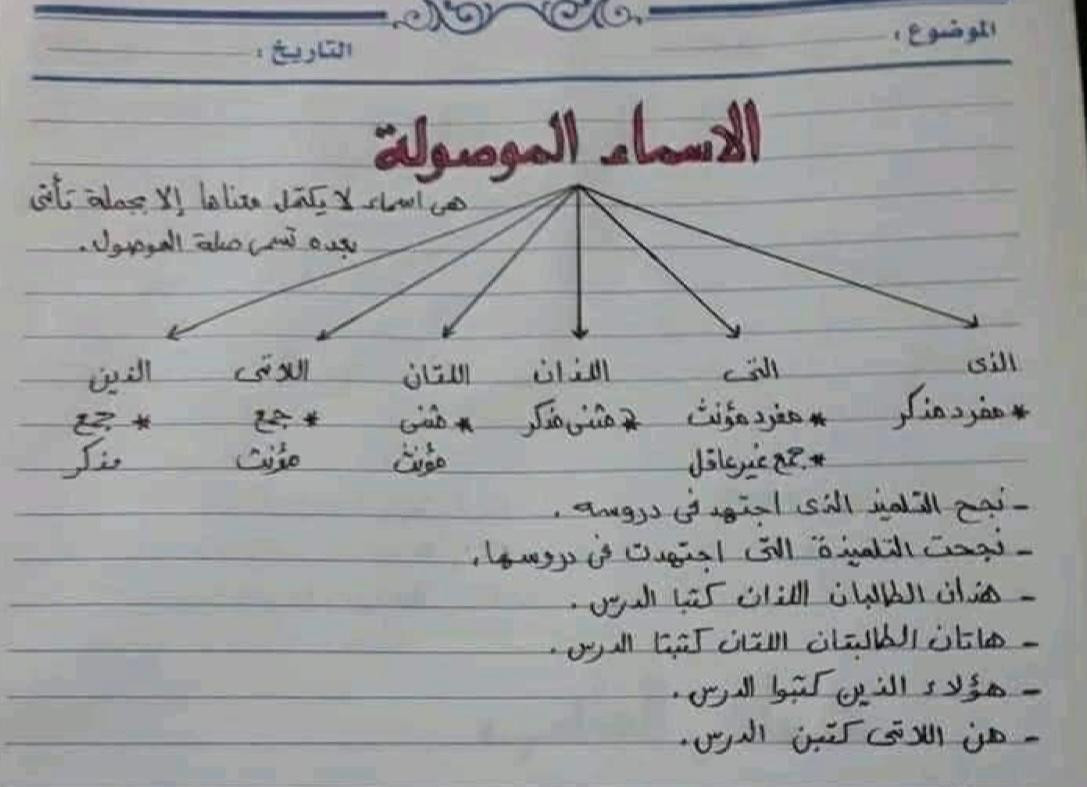 الموضوع :
التاريخ :
الاسماء الموصولة
هى اسماء لا يكتمل معناها إلا بجملة تأتى
بعده تسمى صلة الموصول.
الذى التى اللذان اللتان اللاتى الذين
* مفرد مذكر * مفرد مؤنث * مثنى مذكر * مثنى * جمع * جمع
* جمع غير عاقل مؤنث مؤنث مذكر
- نجح التلميذ الذى اجتهد فى دروسه .
- نجحت التلميذة التى اجتهدت فى دروسها.
- هذان الطالبان اللذان كتبا الدرس .
- هاتان الطالبتان اللتان كتبتا الدرس .
- هؤلاء الذين كتبوا الدرس .
- هن اللاتى كتبن الدرس.